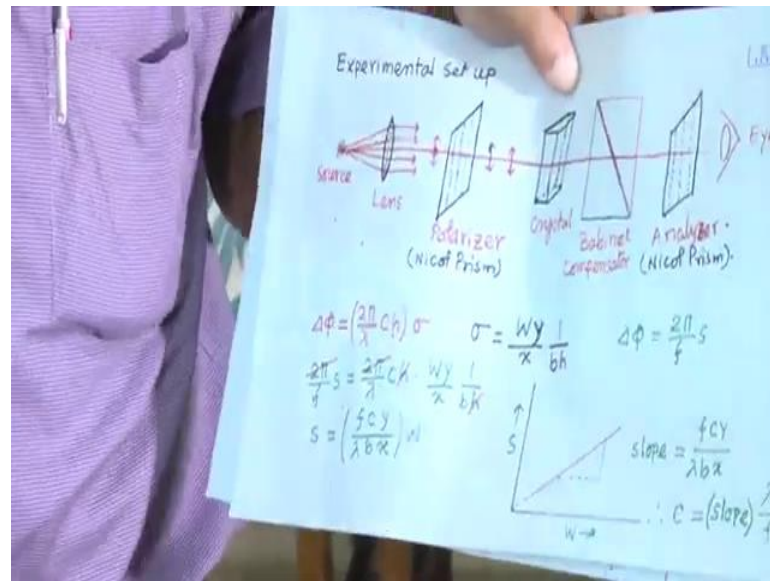 Experimental set up
Source
Lens
Polarizer
(Nicol Prism)
Crystal
Babinet
Compensator
Analyzer.
(Nicol Prism).
Eye
Δφ = (2π/λ Ch) σ
σ = Wy/x 1/bh
Δφ = 2π/f s
2π/f s = 2π/λ Ch · Wy/x 1/bh
S = (fCy/λbx) W
S
W→
slope = fCy/λbx
∴ C = (slope)